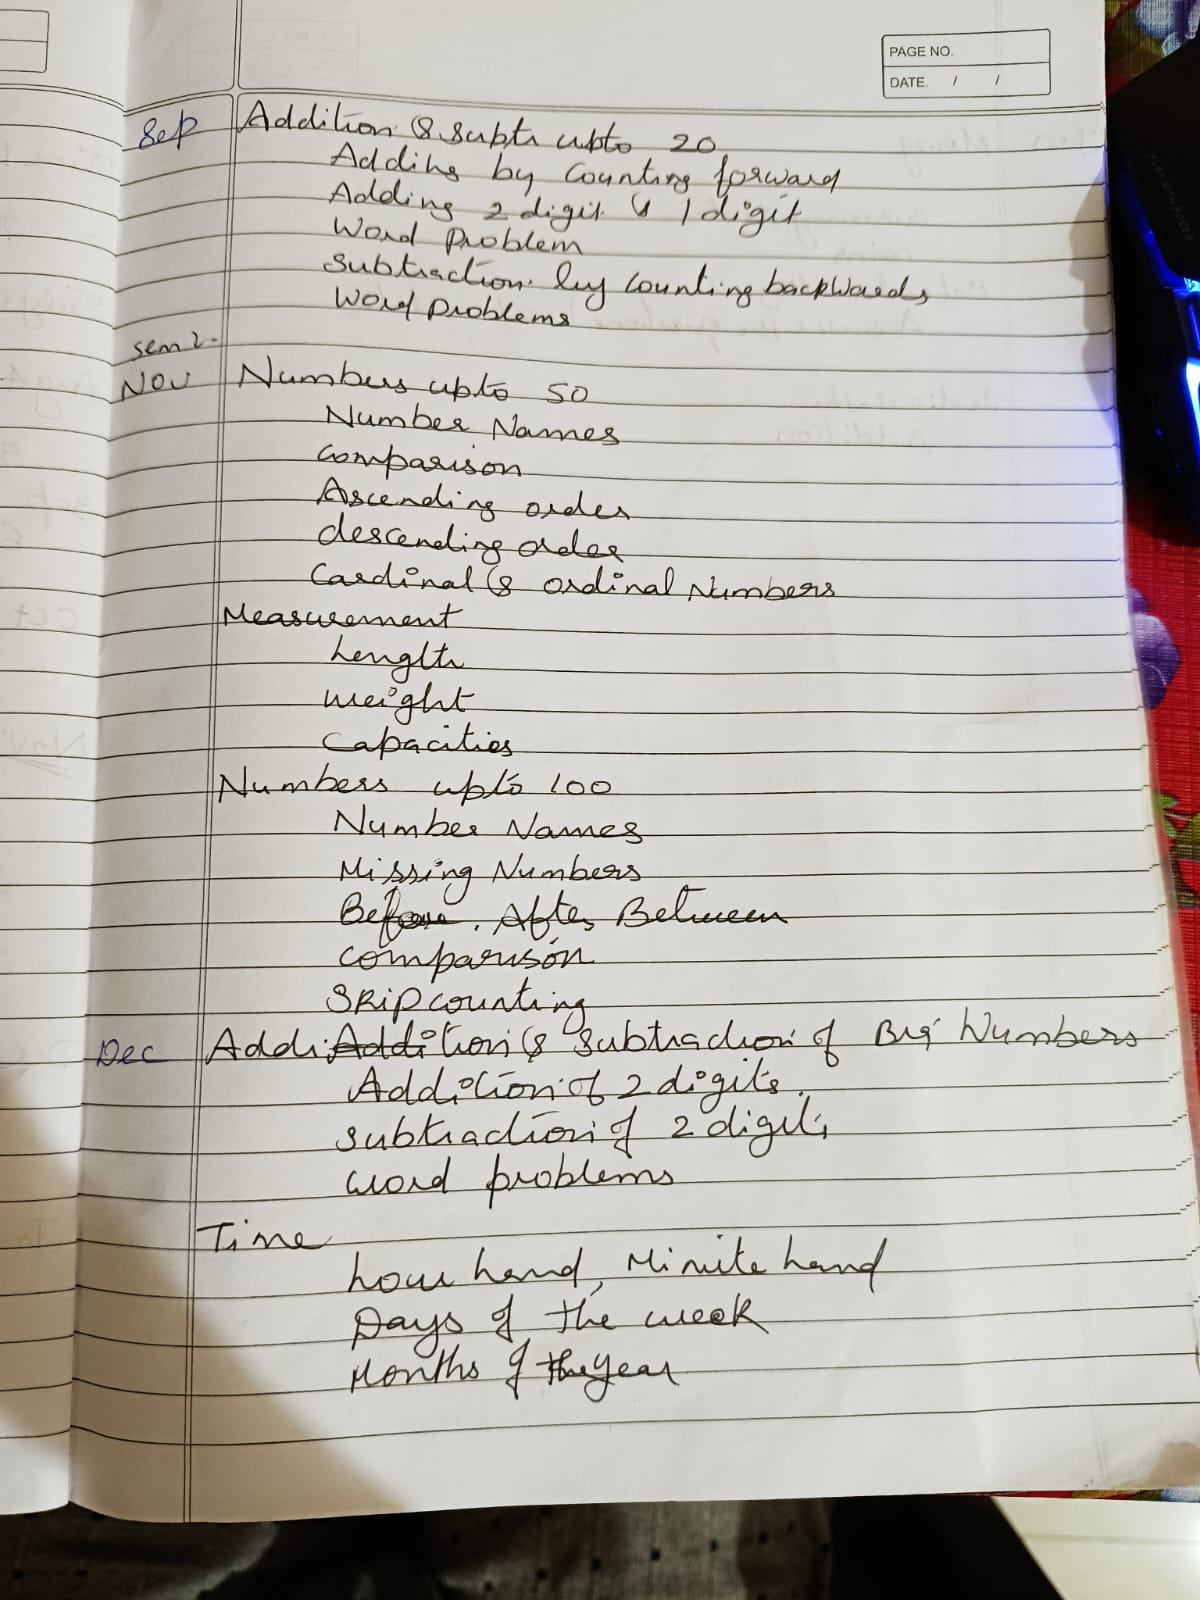 PAGE NO.
DATE. / /
Sep Addition & Subtr upto 20
Adding by Counting forward
Adding 2 digit & 1 digit
Word Problem
Subtraction by Counting backwards
Word Problems
Sem 2-
Nov Numbers upto 50
Number Names
Comparison
Ascending order
descending order
Cardinal & Ordinal Numbers
Measurement
Length
Weight
Capacities
Numbers upto 100
Number Names
Missing Numbers
Before. After, Between
Comparison
Skip counting
Dec Addition & Subtraction of Big Numbers
Addition of 2 digits
Subtraction of 2 digits
Word problems
Time
hour hand, Minite hand
Days of the week
Months of the year